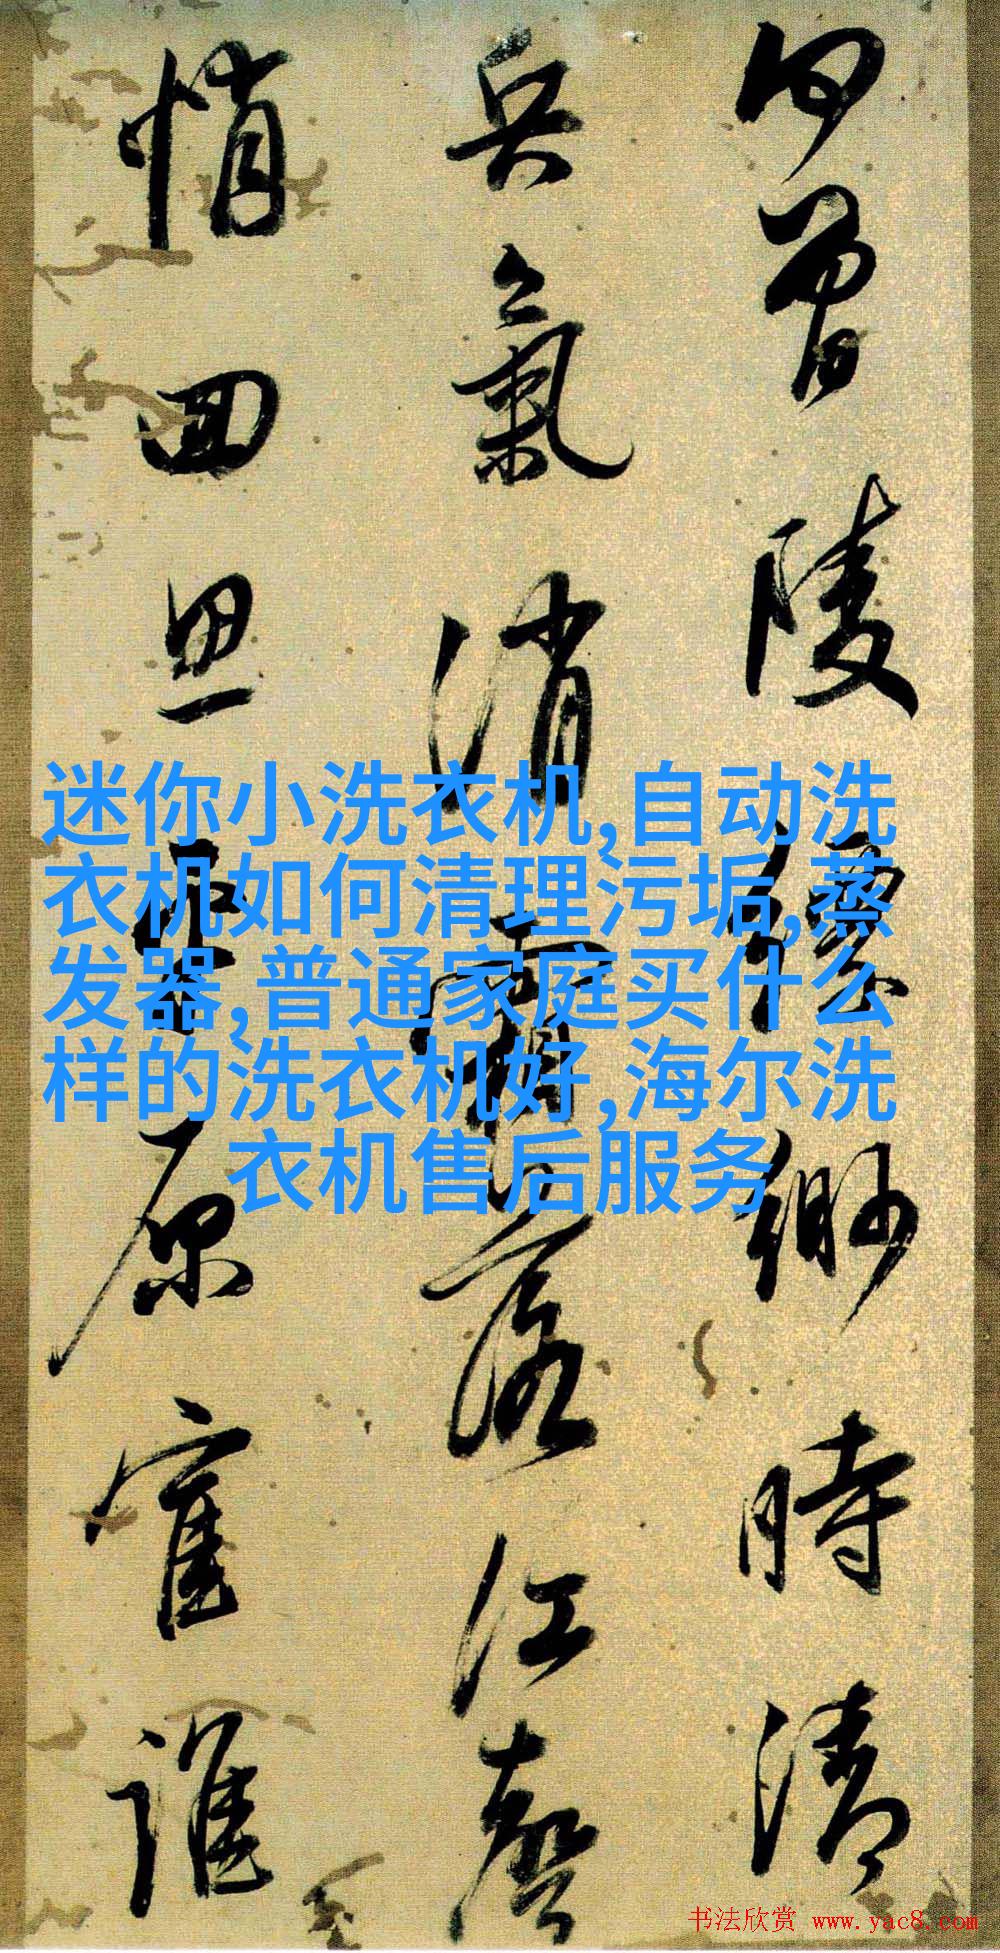 迷你小洗衣机,自动洗
衣机如何清理污垢,蒸
发器,普通家庭买什么
样的洗衣机好,海尔洗
衣机售后服务
陵縹緲時清
兵氣消霜落江聲
悄回思平原誰
书法欣赏 www.yac8.com